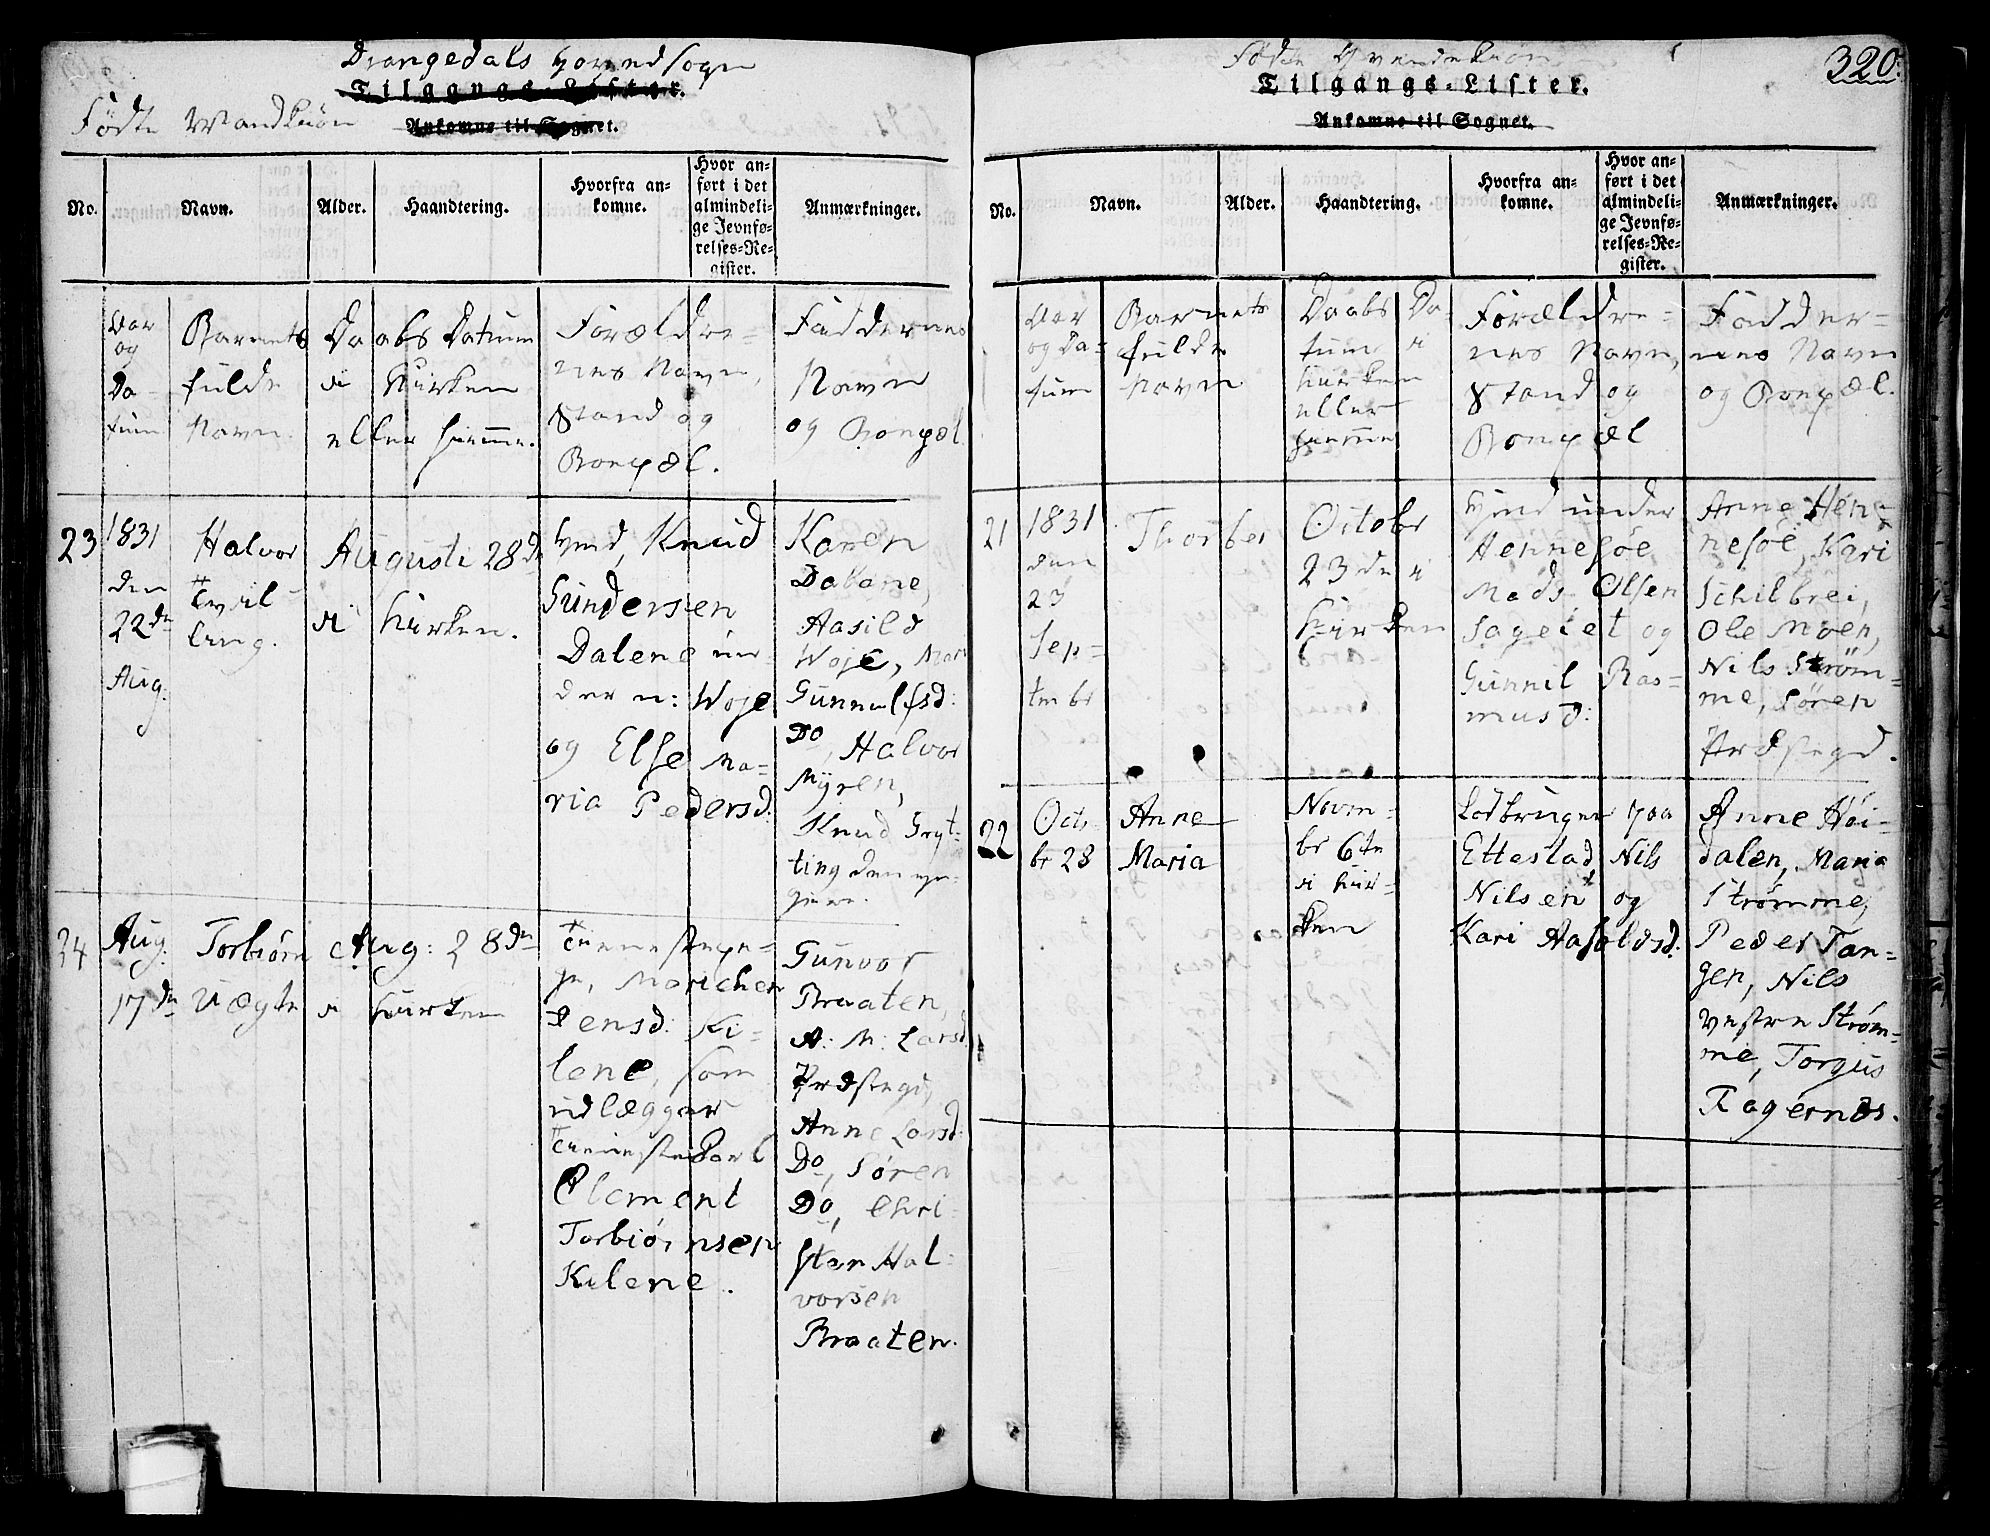 Drangedals Hovedsogn
Tilgangs-Lister.
Fødte Mandkiøn
Ankomne til Sognet.
No.
Navn.
Alder.
Haandtering.
Hvorfra an-
komne.
Hvor an-
ført i det
almindeli-
ge Jevnfø-
relses-Re-
gister.
Anmærkninger.
Aar
og
Da-
tum
Barnets
fulde
Navn.
Daabs Datum
i Kirken
eller hiemme.
Forældre-
nes Navn,
Stand og
Bopæl.
Faddernes
Navn
og Bopæl.
23
1831
den
22de
Aug:
Halvor
Tvil-
ling.
Augusti 28de
i Kirken.
Hmd, Knud
Gundersen
Dalene un-
der n: Woje
og Else Ma-
ria Pedersd:
Karen
Dalane,
Aasild
Woje, Mari
Gunnulfsd:
Do, Halvor
Myren,
Knud Gryt-
ting den yn-
gere.
24
Aug:
17de
Torbiørn
Uægte
Aug: 28de
i Kirken
Tienestepi-
ge, Marichen
Jensd: Ki-
lene, som
udlægger
Tienestekarl
Clement
Torbiørnsen
Kilene.
Gunvor
Braaten,
A: M: Larsd:
Præstegd,
Anne Larsd:
Do, Søren
Do, Chri-
sten Hal-
vorsen
Braaten.
320.
Fødte Qvindekiøn
Tilgangs-Lister.
Ankomne til Sognet.
No.
Navn.
Alder.
Haandtering.
Hvorfra an-
komne.
Hvor an-
ført i det
almindeli-
ge Jevnfø-
relses-Re-
gister.
Anmærkninger.
Aar
og Da-
tum
Barnets
fulde
Navn
Daabs Da-
tum i
Kirken
eller
hiemme
Forældre-
nes Navn,
Stand og
Bopæl
Fadder-
nes Navn
og Bopæl.
21
1831
den
23
Sep-
tmbr
Thorber
Octobr
23de i
Kirken
Hmd under
Hennesøe
Mads Olsen
Sageiet og
Gunnil Ras-
musd:
Anne Hen-
nesøe, Kari
Schilbrei,
Ole Moen,
Nils Strøm-
me, Søren
Præstegd.
22
Octo-
br 28
Anne
Maria
Novm-
br 6te
i Kir-
ken
Lodbruger paa
Ettestad Nils
Nilsen og
Kari Aasoldsd:
Anne Høi-
dalen, Maria
Strømme,
Peder Tan-
gen, Nils
vestre Strøm-
me, Torgus
Fagernæs.